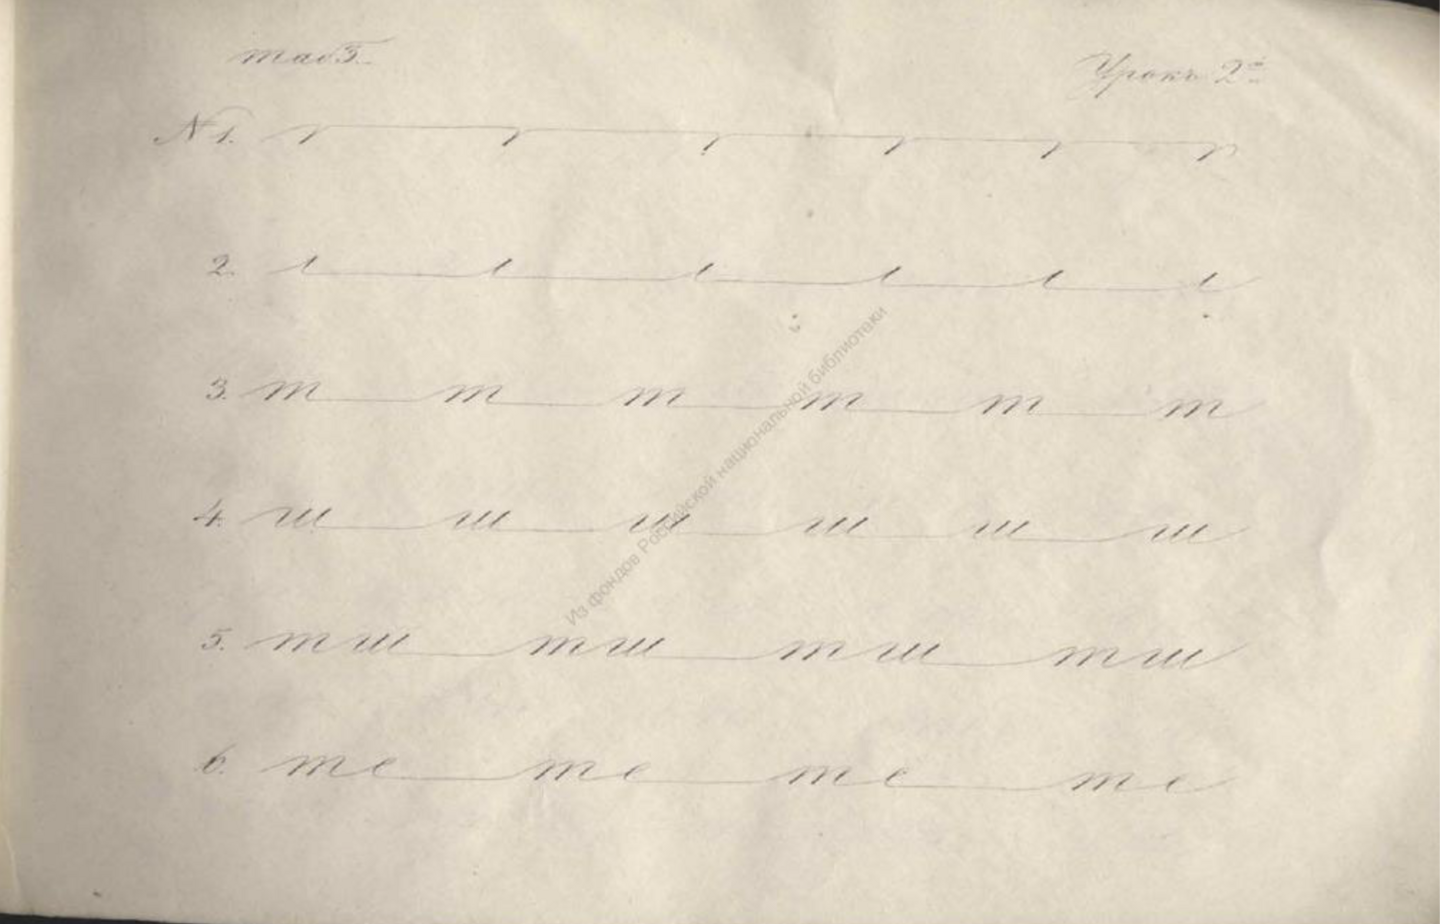 таб 3. Урокъ 2й
№ 1.
2.
3. т т т т т т
4. ш ш ш ш ш ш
5. тш тш тш тш
6. те те те те
Из фондов Российской национальной библиотеки